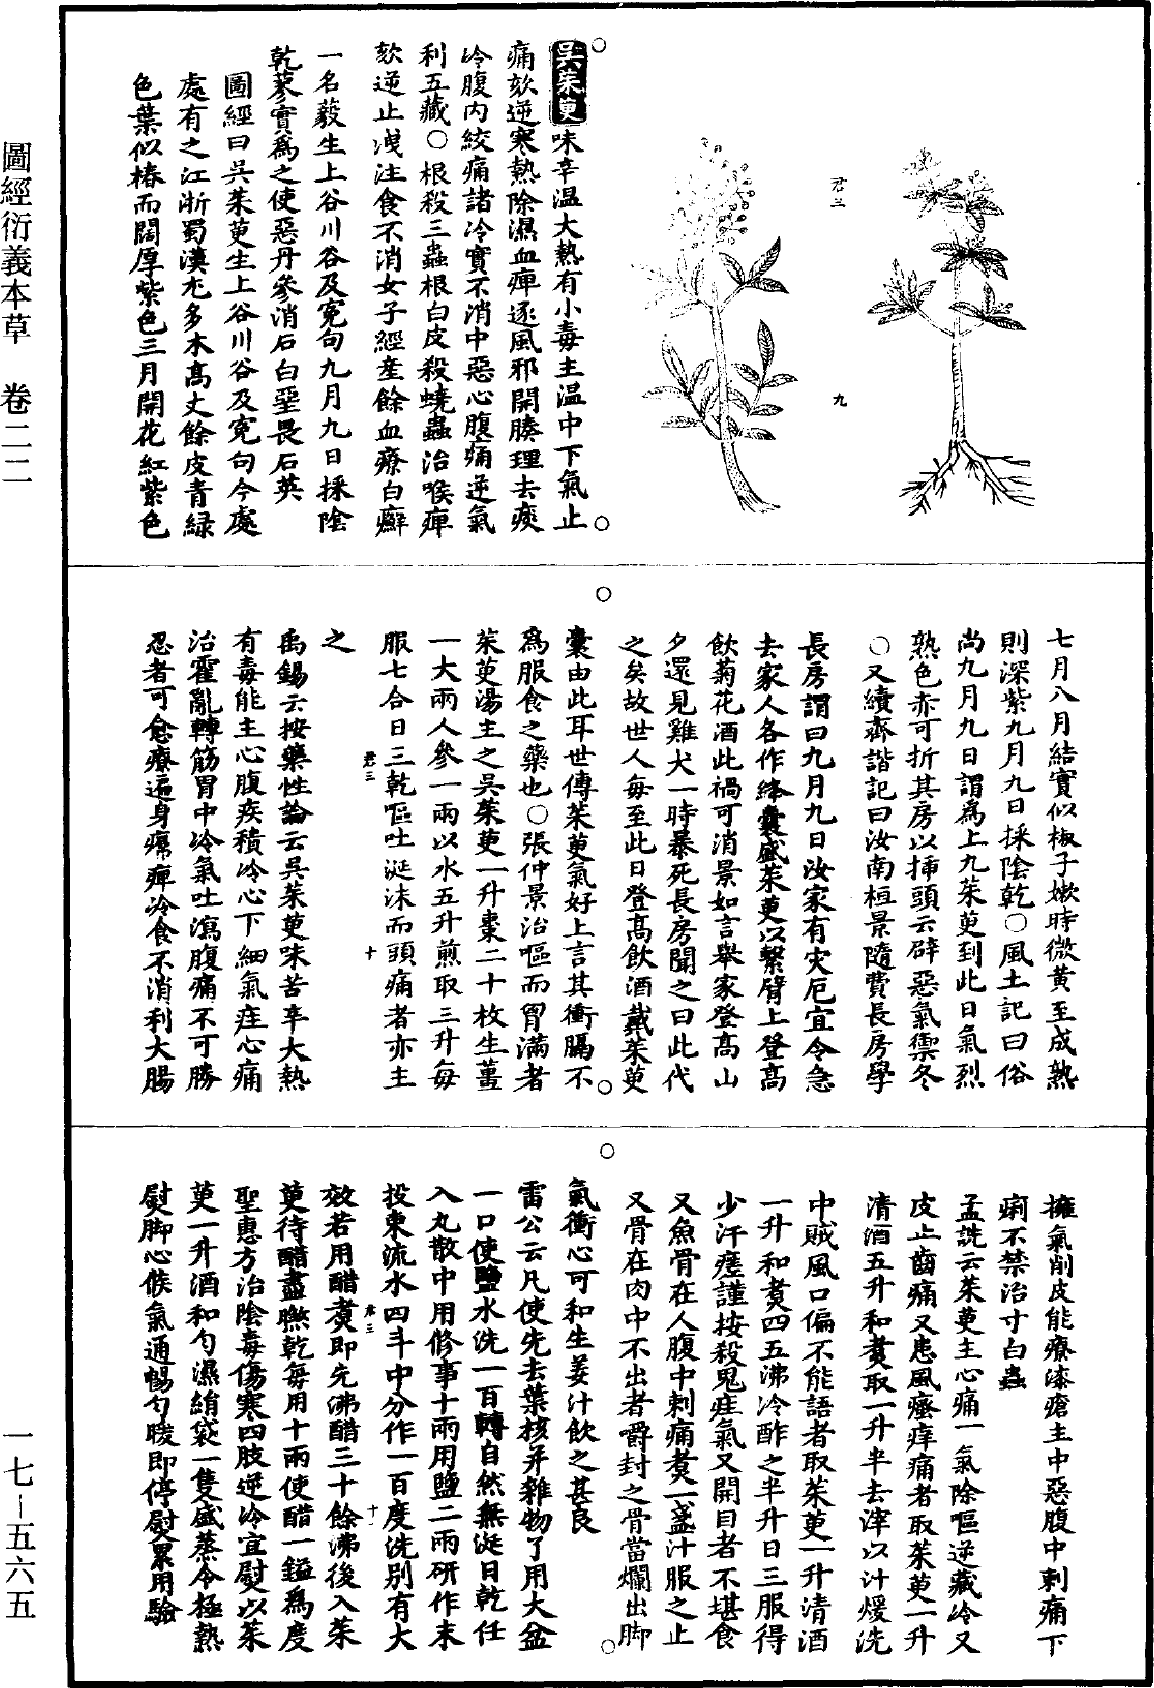 圖經衍義本草　卷二二
一七－五六五
君三
九
吳茱萸味辛溫大熱有小毒主溫中下氣止
痛欬逆寒熱除濕血痺逐風邪開腠理去痰
冷腹內絞痛諸冷實不消中惡心腹痛逆氣
利五藏○根殺三蟲根白皮殺蟯蟲治喉痺
欬逆止洩注食不消女子經產餘血療白癬
一名藙生上谷川谷及冤句九月九日採陰
乾蓼實為之使惡丹參消石白堊畏石英
圖經曰吳茱萸生上谷川谷及冤句今處
處有之江浙蜀漢尤多木高丈餘皮青綠
色葉似椿而闊厚紫色三月開花紅紫色
七月八月結實似椒子嫩時微黃至成熟
則深紫九月九日採陰乾○風土記曰俗
尚九月九日謂為上九茱萸到此日氣烈
熟色赤可折其房以插頭云辟惡氣禦冬
○又續齊諧記曰汝南桓景隨費長房學
長房謂曰九月九日汝家有災厄宜令急
去家人各作絳囊盛茱萸以繫臂上登高
飲菊花酒此禍可消景如言舉家登高山
夕還見雞犬一時暴死長房聞之曰此代
之矣故世人每至此日登高飲酒戴茱萸
囊由此耳世傳茱萸氣好上言其衝膈不
為服食之藥也○張仲景治嘔而胃滿者
茱萸湯主之吳茱萸一升棗二十枚生薑
一大兩人參一兩以水五升煎取三升每
服七合日三乾嘔吐涎沫而頭痛者亦主
君三
十
之
禹錫云按藥性論云吳茱萸味苦辛大熱
有毒能主心腹疾積冷心下細氣疰心痛
治霍亂轉筋胃中冷氣吐瀉腹痛不可勝
忍者可愈療遍身𤸷痺冷食不消利大腸
擁氣削皮能療漆瘡主中惡腹中刺痛下
痢不禁治寸白蟲
孟詵云茱萸主心痛一氣除嘔逆藏冷又
皮止齒痛又患風瘙痒痛者取茱萸一升
清酒五升和煮取一升半去滓以汁煖洗
中賊風口偏不能語者取茱萸一升清酒
一升和煮四五沸冷酢之半升日三服得
少汗瘥謹按殺鬼疰氣又開目者不堪食
又魚骨在人腹中刺痛煮一盞汁服之止
又骨在肉中不出者嚼封之骨當爛出脚
氣衝心可和生姜汁飲之甚良
雷公云凡使先去葉核并雜物了用大盆
一口使鹽水洗一百轉自然無涎日乾任
入丸散中用修事十兩用鹽二兩研作末
投東流水四斗中分作一百度洗別有大
君三
十一
效若用醋煮即先沸醋三十餘沸後入茱
萸待醋盡㬠乾每用十兩使醋一鎰為度
聖惠方治陰毒傷寒四肢逆冷宜熨以茱
萸一升酒和勻濕絹袋一隻盛蒸令極熱
熨脚心候氣通暢勻暖即停熨累用驗